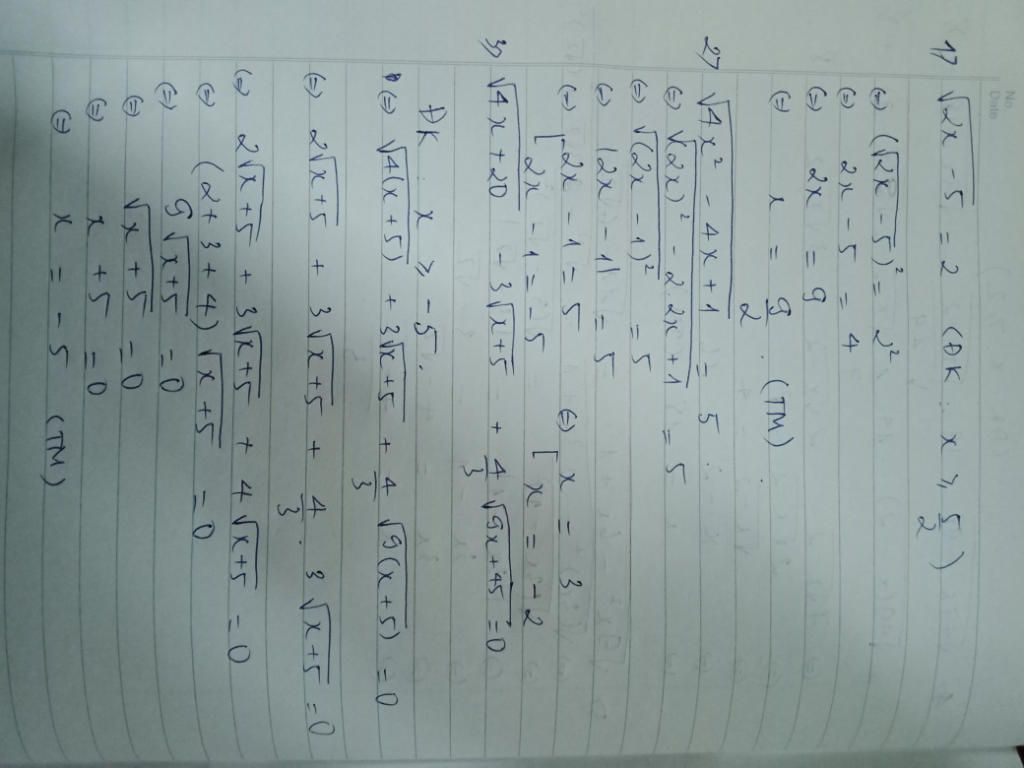 No.
Date
1) √(2x - 5) = 2 (ĐK: x ≥ 5/2)
(=) (√(2x - 5))² = 2²
(=) 2x - 5 = 4
(=) 2x = 9
(=) x = 9/2 . (TM)
2) √(4x² - 4x + 1) = 5
(=) √((2x)² - 2.2x + 1) = 5
(=) √((2x - 1)²) = 5
(=) |2x - 1| = 5
(=) [ 2x - 1 = 5 (=) [ x = 3
2x - 1 = -5 x = -2
3) √(4x + 20) - 3√(x + 5) + 4/3 √(9x + 45) = 0
ĐK x ≥ -5.
(=) √(4(x + 5)) + 3√(x + 5) + 4/3 √(9(x + 5)) = 0
(=) 2√(x + 5) + 3√(x + 5) + 4/3 . 3√(x + 5) = 0
(=) 2√(x + 5) + 3√(x + 5) + 4√(x + 5) = 0
(=) (2 + 3 + 4)√(x + 5) = 0
(=) 9√(x + 5) = 0
(=) √(x + 5) = 0
(=) x + 5 = 0
(=) x = -5 (TM)